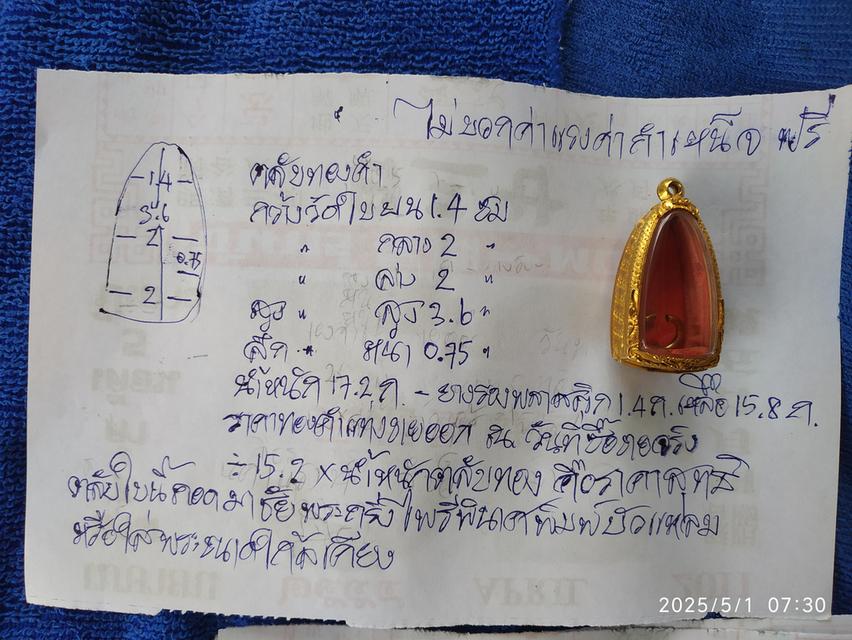 ไม่บอกค่าแรงค่ากำเหน็จ ฟรี
ตลับทองคำ
กว้างวัดใบบน 1.4 ซม
1.4
" กลาง 2 "
3.6
2
" ล่าง 2 "
0.75
2
สูง " สูง 3.6 "
ลึก " หนา 0.75 "
น้ำหนัก 17.2 ก. - ยางรองพลาสติก 1.4 ก. เหลือ 15.8 ก.
ราคาทองคำแท่งขายออก ณ วันที่ซื้อขายจริง
÷ 15.2 x น้ำหนักตลับทอง คือราคาสุทธิ
ตลับใบนี้ถอดมาจาก พระกริ่งไพรีพินาศพิมพ์บัวแหลม
หรือใส่พระขนาดใกล้เคียง
2025/5/1 07:30